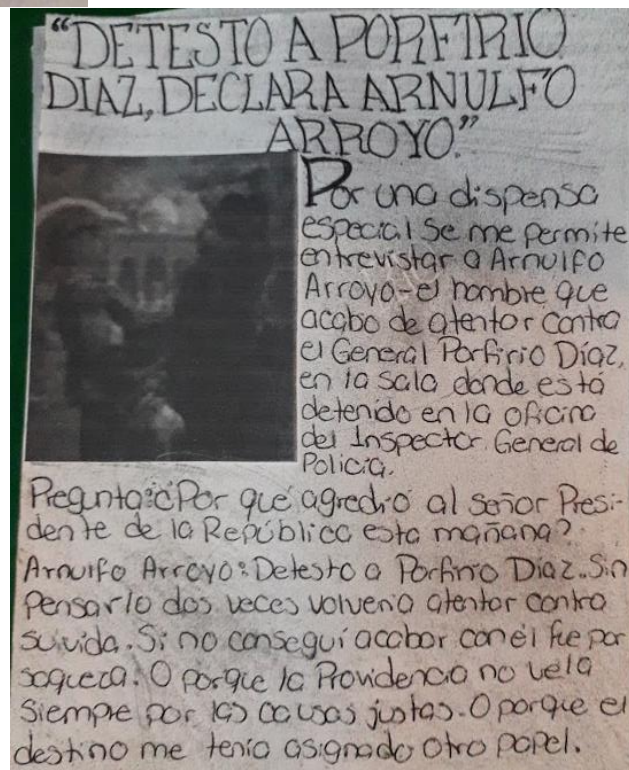 “DETESTO A PORFIRIO
DIAZ, DECLARA ARNULFO
ARROYO.”
Por una dispensa
especial se me permite
entrevistar a Arnulfo
Arroyo-el hombre que
acabo de atentor contra
el General Porfirio Díaz,
en la sala donde está
detenido en la oficina
del Inspector General de
Policía.
Pregunta: ¿Por qué agredio al señor Presi-
dente de la República esta mañana?
Arnulfo Arroyo: Detesto a Porfirio Diaz. Sin
pensarlo dos veces volveria atentor contra
su vida. Si no conseguí acabor con él fue por
saqueza. O porque la Providencia no vela
siempre por las causas justas. O porque el
destino me tenia asignado otro papel.